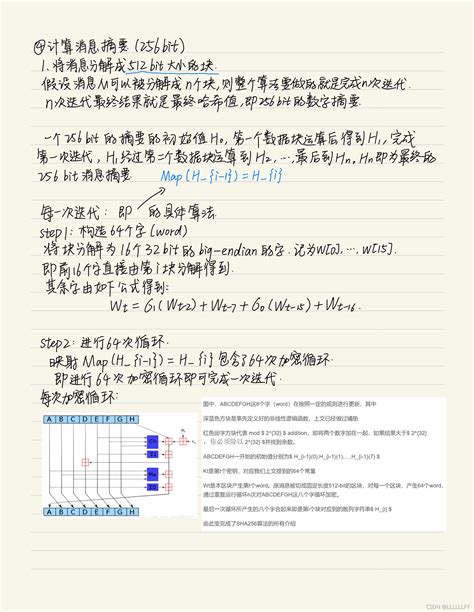 ④计算消息摘要(256bit)
1.将消息分解成512bit大小的块.
假设消息M可以被分解成n个块,则整个算法要做的就是完成n次迭代.
n次迭代最终结果就是最终哈希值,即256bit的数字摘要.
一个256bit的摘要的初始值H₀,第一个数据块运算后得到H₁,完成
第一次迭代,H₁经过第二个数据块运算到H₂,…,最后到Hn,Hn即为最终的
256bit消息摘要 Map(H_{i-1})=H_{i}
每一次迭代:即 的具体算法
step1:构造64个字(word)
将块分解为16个32bit的big-endian的字,记为W[0],…,W[15].
即前16个字直接由第i块分解得到.
其余字由如下公式得到:
Wt=б1(Wt-2)+Wt-7+б0(Wt-15)+Wt-16.
step2:进行64次循环.
映射Map(H_{i-1})=H_{i}包含了64次加密循环.
即进行64次加密循环即可完成一次迭代.
每次加密循环:
A B C D E F G H
Ch
Σ1
Ma
Σ0
Wt
Kt
A B C D E F G H
图中,ABCDEFGH这8个字(word)在按照一定的规则进行更新,其中
深蓝色方块是事先定义好的非线性逻辑函数,上文已经做过铺垫
红色田字方块代表 mod $ 2^{32} $ addition,即将两个数字加在一起,如果结果大于$ 2^{32}
$ ,你必须除以 2^{32} $并找到余数。
ABCDEFGH一开始的初始值分别为$ H_{i-1}(0),H_{i-1}(1),...,H_{i-1}(7) $
Kt是第t个密钥,对应我们上文提到的64个常量
Wt是本区块产生第t个word。原消息被切成固定长度512-bit的区块,对每一个区块,产生64个word,
通过重复运行循环n次对ABCDEFGH这八个字循环加密。
最后一次循环所产生的八个字合起来即是第i个块对应到的散列字符串$ H_{i} $
由此变完成了SHA256算法的所有介绍
CSDN @LLLLLLFY